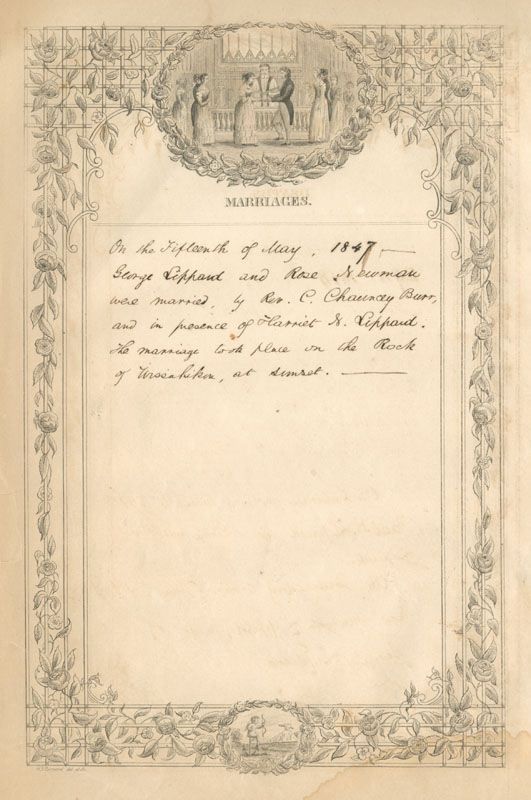 MARRIAGES.
On the Fifteenth of May, 1847, —
George Lippard and Rose Newman
were married, by Rev. C. Chauncey Burr,
and in presence of Harriet N. Lippard.
The marriage took place on the Rock
of Wissahikon, at sunset. —